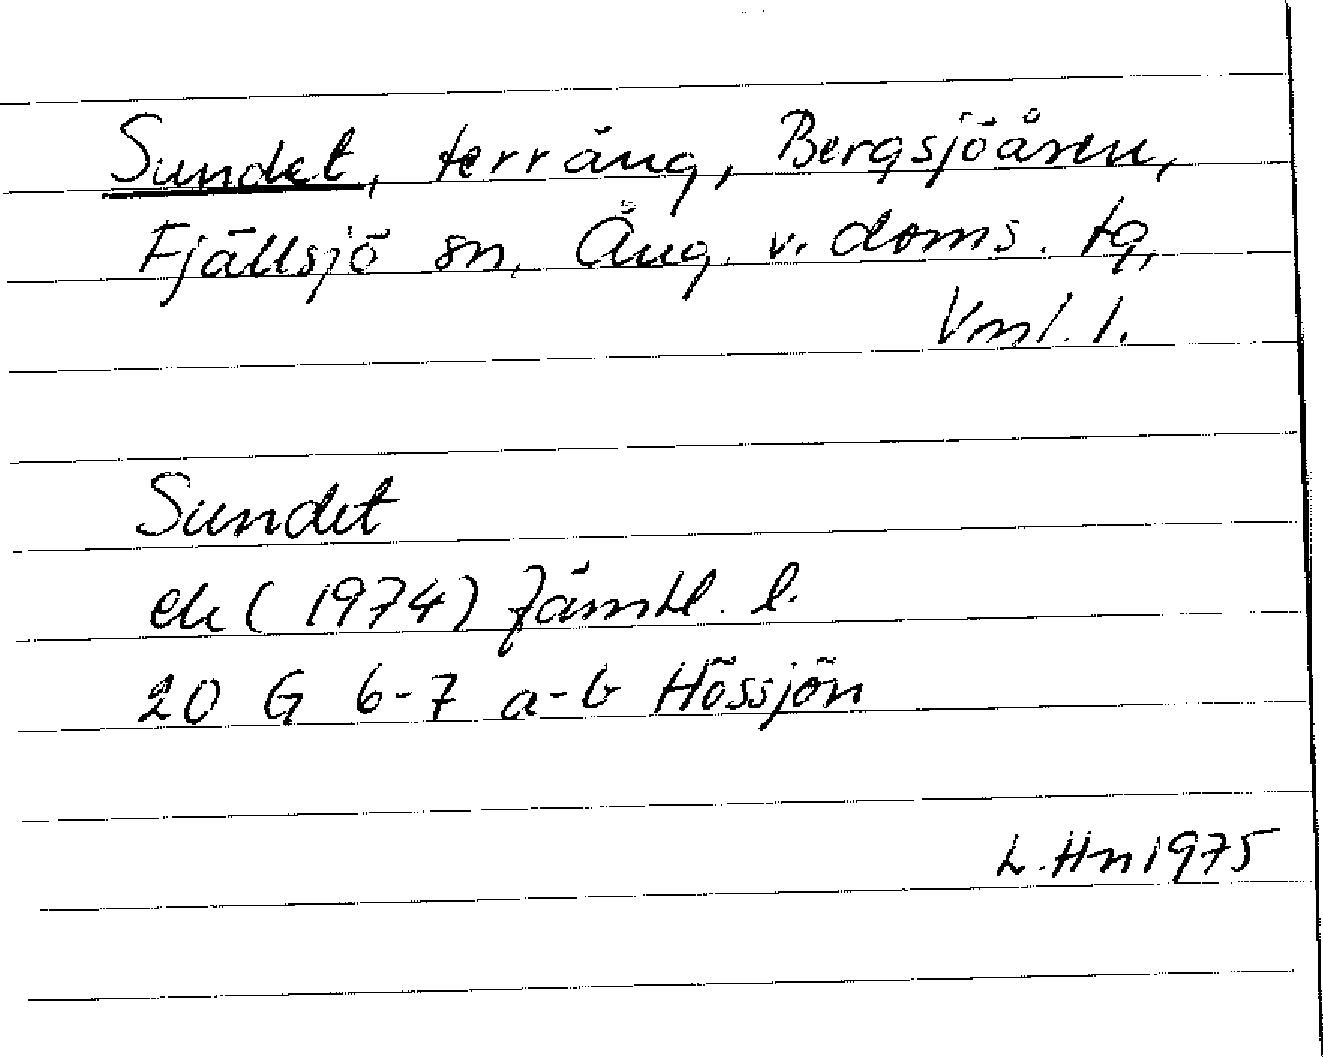 Sundet, terräng, Bergsjöåsen,
Fjällsjö sn, Ång. v. doms. tg,
Vnl. l.
Sundet
ek (1974) Jämtl. l.
20 G 6-7 a-b Hössjön
L. Hn 1975